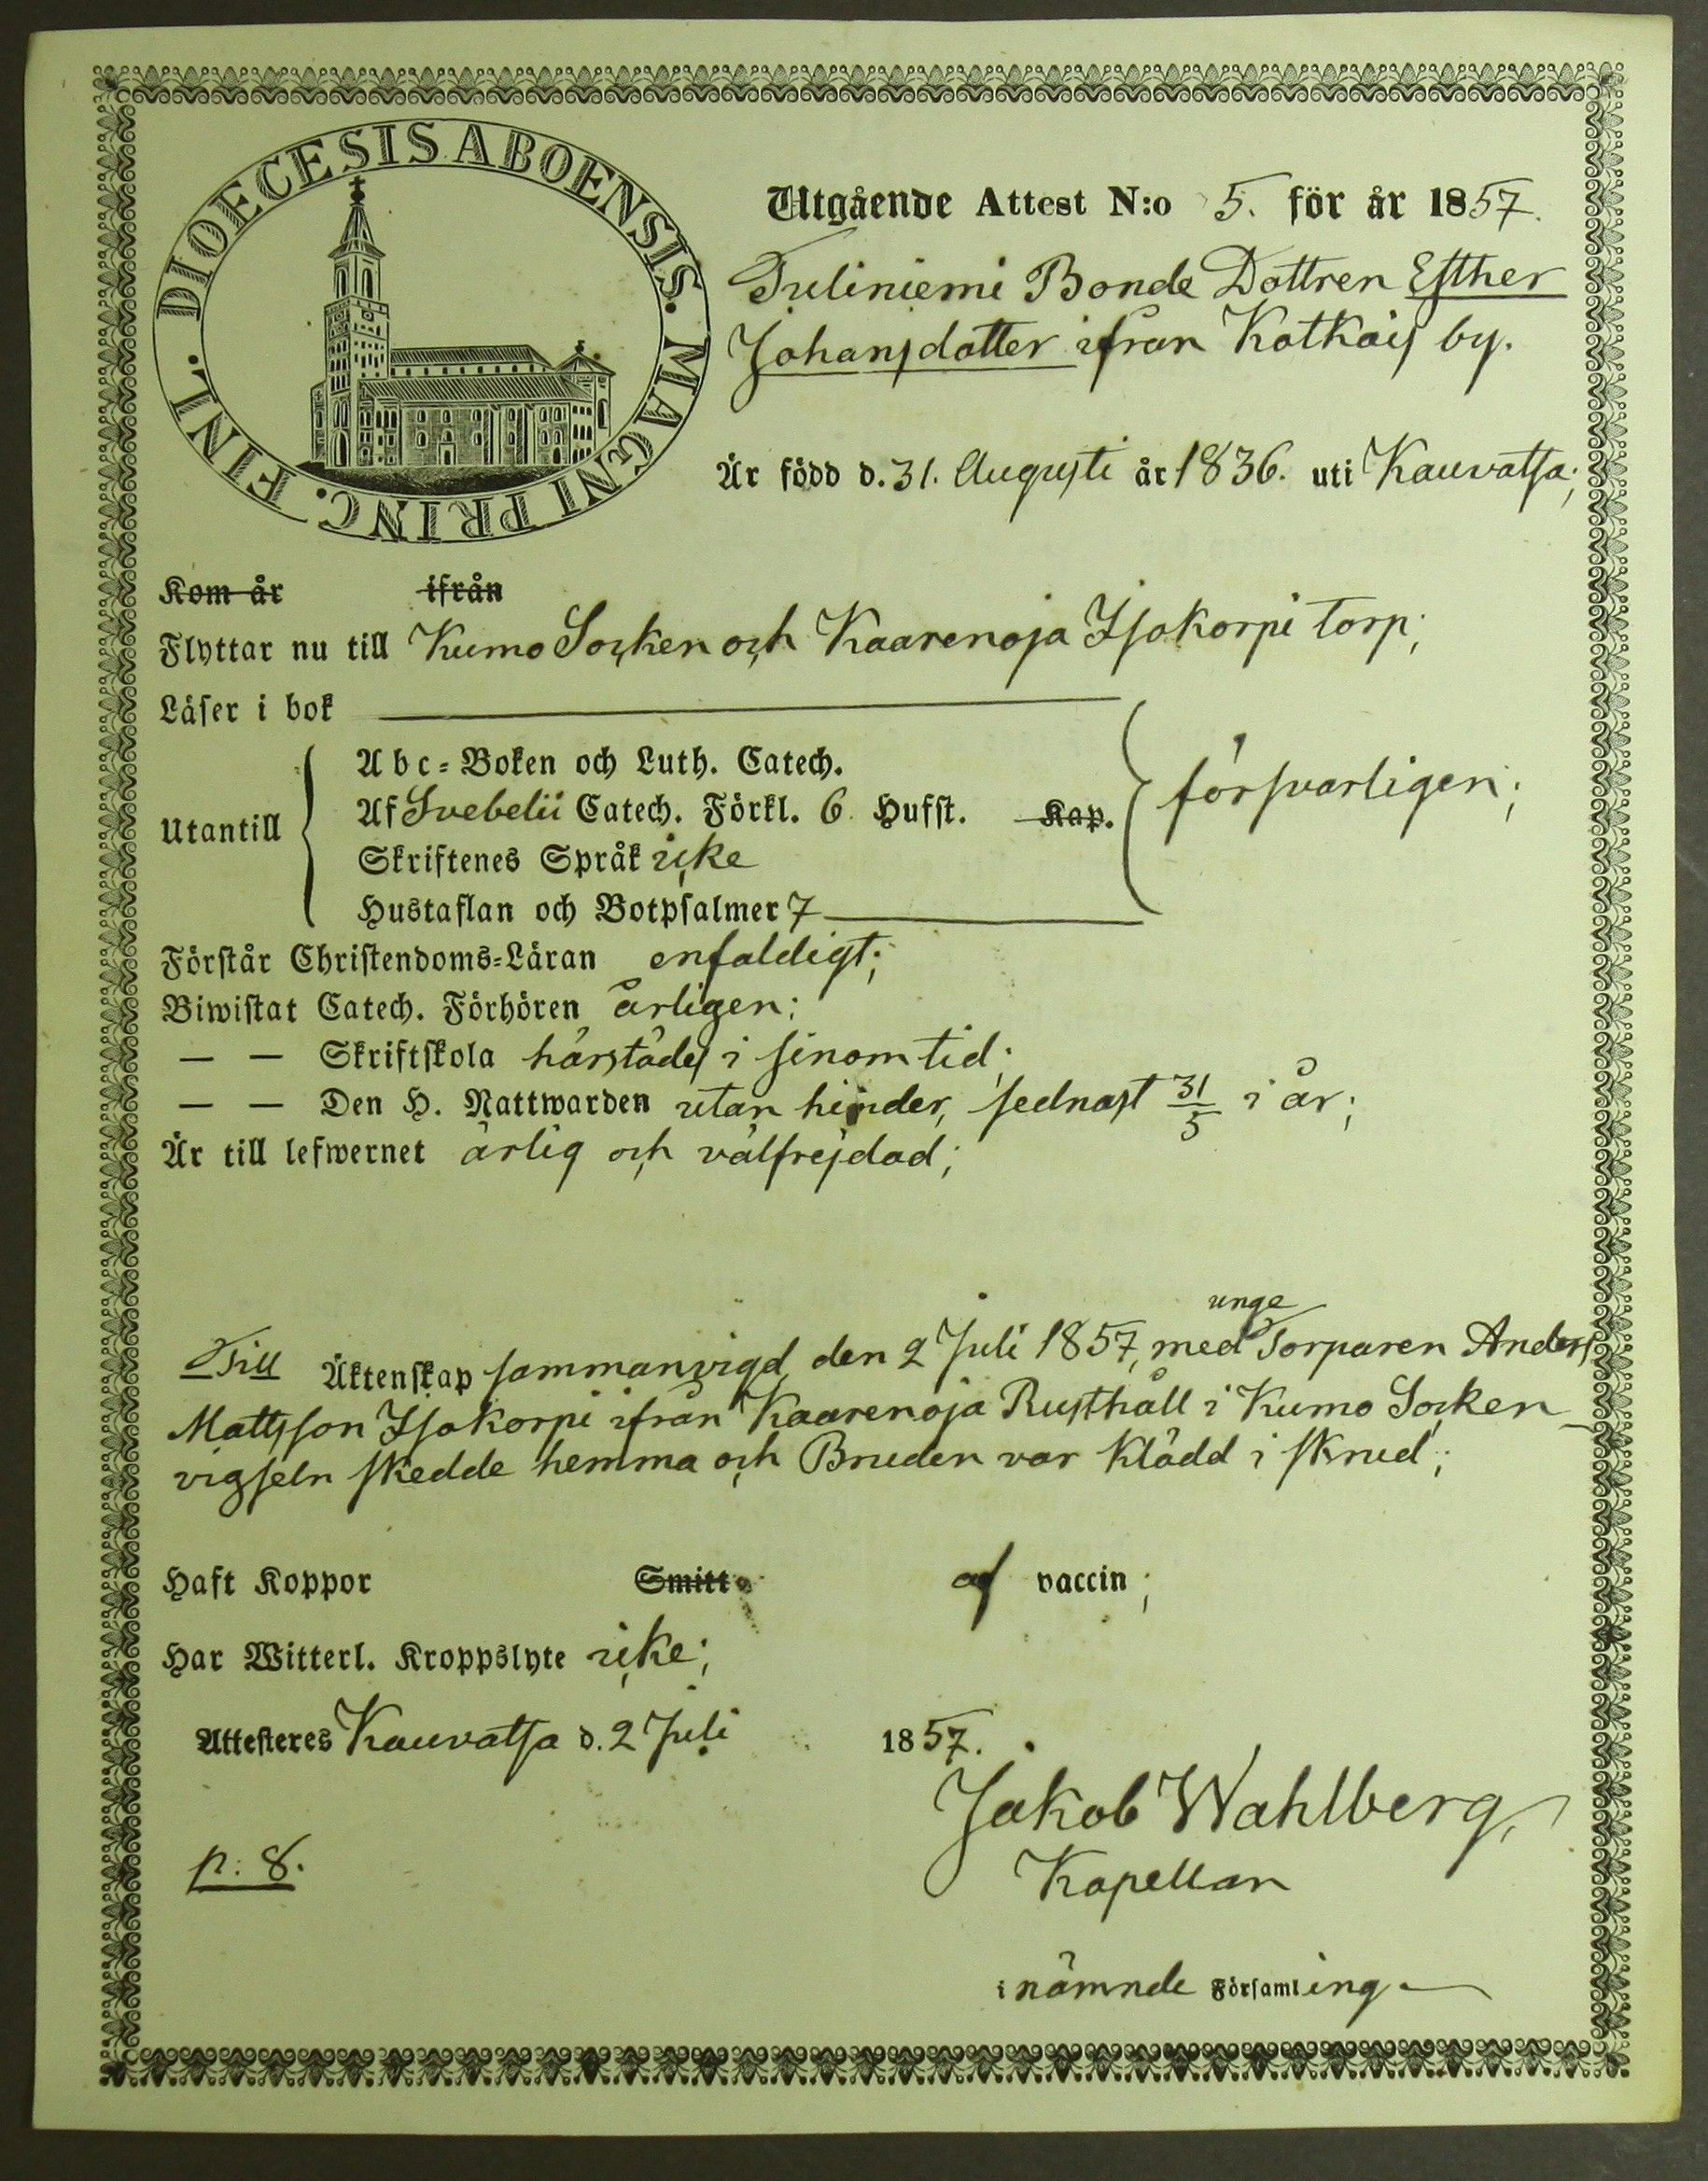 DIOECESIS ABOENSIS. MAGNI PRINC. FINL.
Utgående Attest N:o 5. för år 1857.
Tuliniemi Bonde Dottren Esther
Johansdotter ifrån Kotkais by.
Är född d. 31. Augusti år 1836. uti Kauvatsa;
Kom år ifrån
Flyttar nu till Kumo Socken och Kaarenoja Isokorpi torp;
Läser i bok
Utantill
Abc-Boken och Luth. Catech.
Af Svebelii Catech. Förkl. 6 Hufst. Kap.
Skriftenes Språk icke
Hustaflan och Botpsalmer 7
försvarligen;
Förstår Christendoms-Läran enfaldigt;
Biwistat Catech. Förhören årligen;
— — Skriftskola härstädes i sinom tid;
— — Den H. Nattwarden utan hinder, sednast 31/5 i år;
Är till lefwernet ärlig och välfrejdad;
unge
Till Äktenskap sammanvigd den 2 Juli 1857, med Torparen Anders
Mattsson Isokorpi ifrån Kaarenoja Rusthåll i Kumo Socken
vigseln skedde hemma och Bruden var klädd i skrud;
Haft Koppor Smitt. af vaccin;
Har Witterl. Kroppslyte icke;
Attesteres Kauvatsa d. 2 Juli 1857.
Jakob Wahlberg,
Kapellan
p: 8.
i nämnde Församling